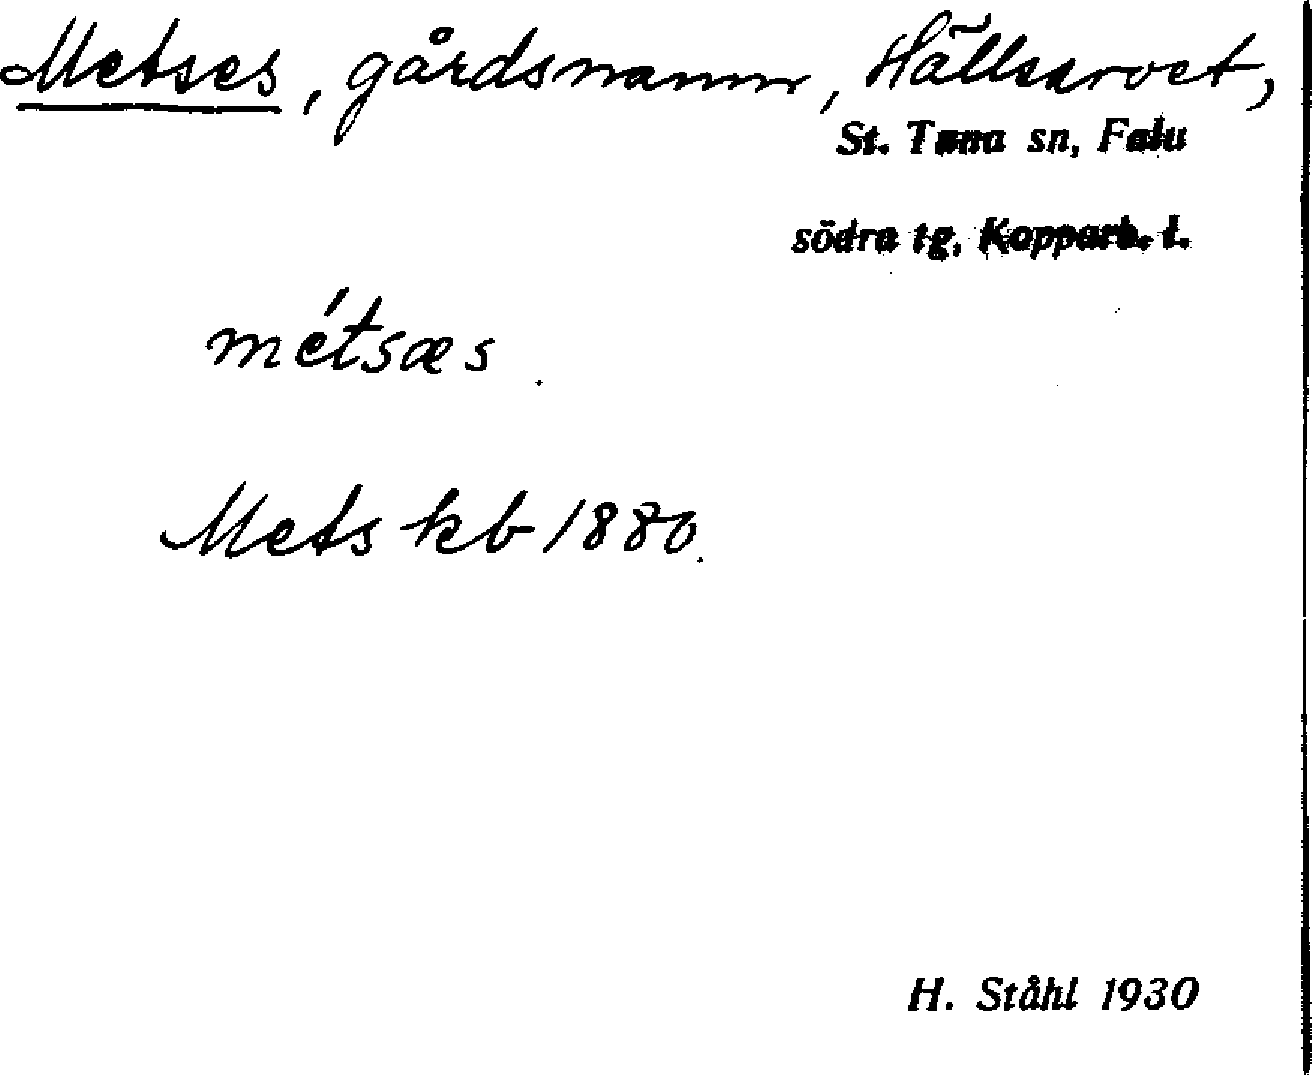 Metses, gårdsnamn, Hällsarvet,
St. Tuna sn, Falu
södra tg, Kopparb. l.
métsæs
Mets kb 1880.
H. Ståhl 1930